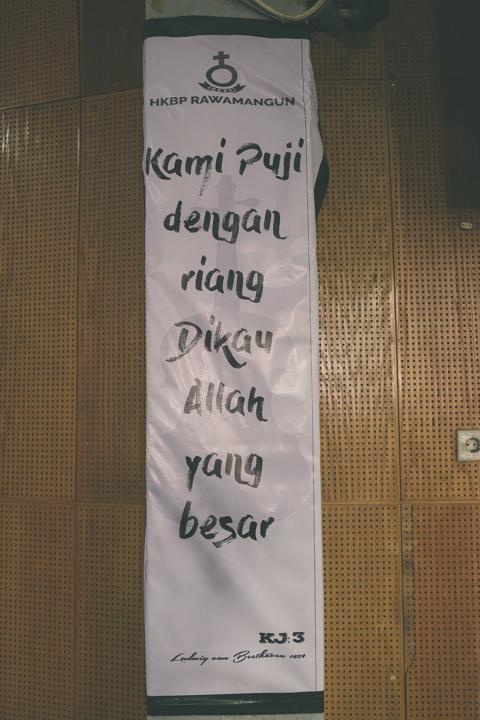 HKBP RAWAMANGUN
Kami Puji
dengan
riang
Dikau
Allah
yang
besar
KJ:3
Ludwig van Beethoven 1824